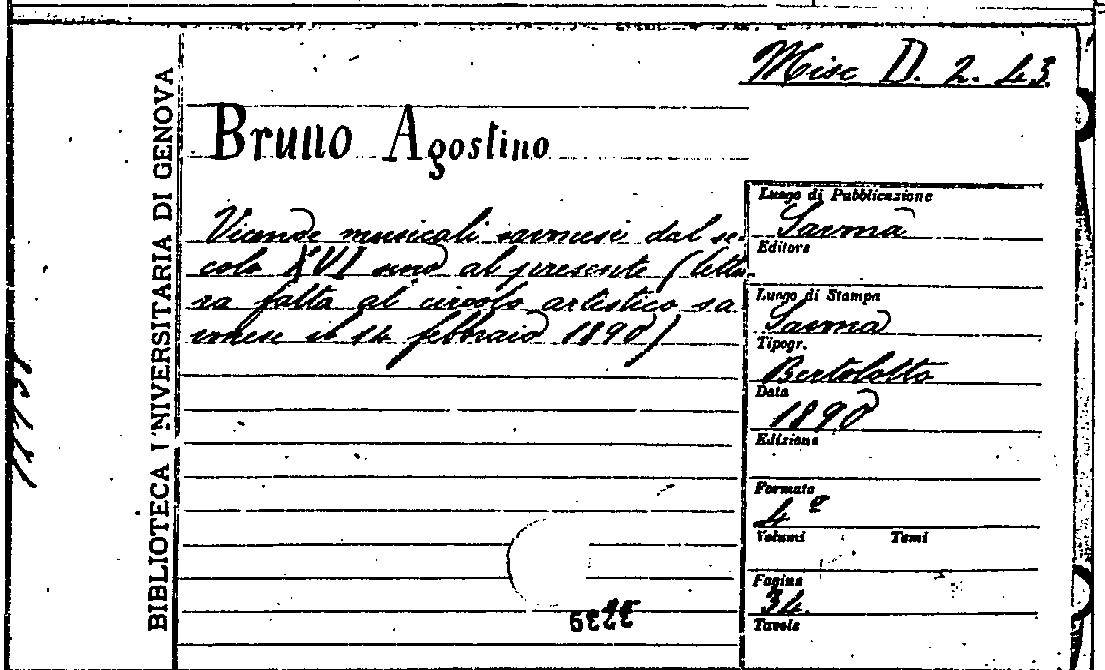 Misc D. 2. 43
BIBLIOTECA UNIVERSITARIA DI GENOVA
Bruno Agostino
Vicende musicali savonesi dal se-
colo XVI sino al presente (lettu-
ra fatta al circolo artistico sa
vonese il 14 febbraio 1890)
Luogo di Pubblicazione
Savona
Editore
Luogo di Stampa
Savona
Tipogr.
Bertolotto
Data
1890
Edizione
Formato
4°
Volumi Tomi
Pagine
34.
Tavole